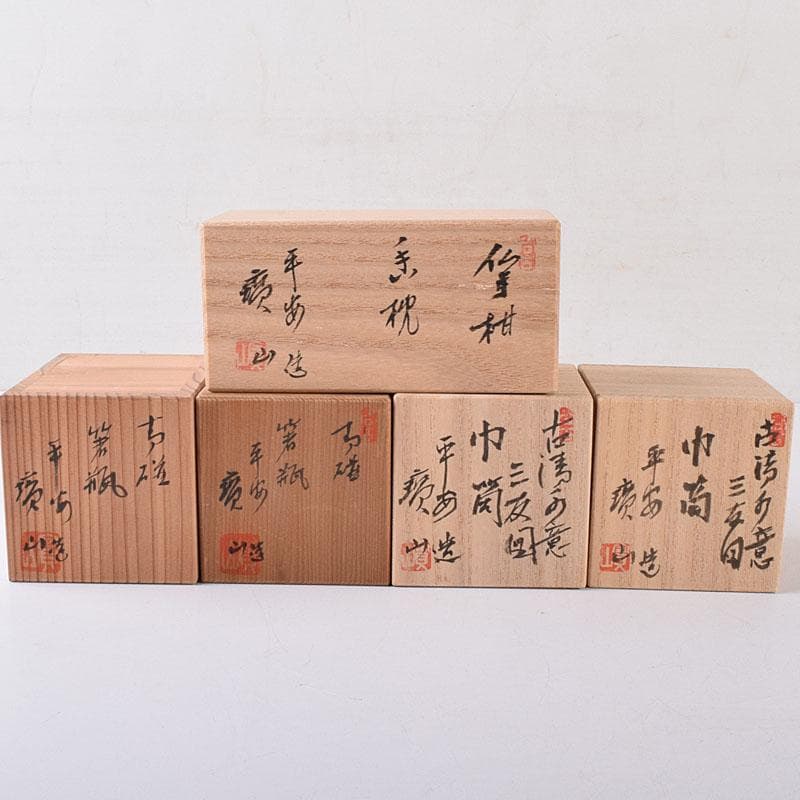 仏手柑
香枕
平安
寶山造
青磁
箸瓶
平安
寶山造
青磁
箸瓶
平安
寶山造
古清水意
三友図
巾筒
平安
寶山造
古清水意
三友図
巾筒
平安
寶山造